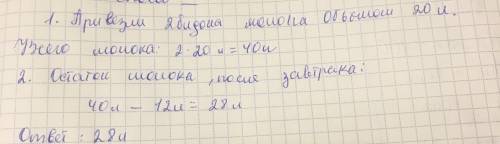 1. Привезли 2 бидона молока объёмом 20 л.
Узего молока: 2·20 л = 40л
2. Остаток молока, после завтрака:
40л - 12л = 28л
Ответ: 28л